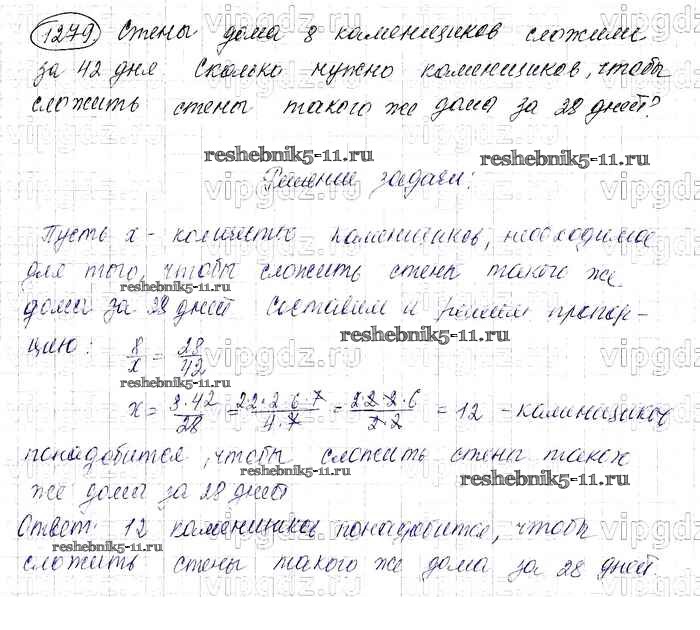 1279 Стены дома 8 каменщиков сложили
за 42 дня. Сколько нужно каменщиков, чтобы
сложить стены такого же дома за 28 дней?
reshebnik5-11.ru reshebnik5-11.ru
Решение задачи:
Пусть x - количество каменщиков, необходимое
для того, чтобы сложить стены такого же
reshebnik5-11.ru
дома за 28 дней Составим и решим пропор-
reshebnik5-11.ru
цию: 8/x = 28/42
reshebnik5-11.ru
x = 8·42/28 = 22·2·6·7/4·7 = 2·2·2·6/2·2 = 12 - каменщиков
понадобится, чтобы сложить стены такого
reshebnik5-11.ru reshebnik5-11.ru
же дома за 28 дней
Ответ: 12 каменщиков понадобится, чтобы
reshebnik5-11.ru
сложить стены такого же дома за 28 дней.
vipgdz.ru